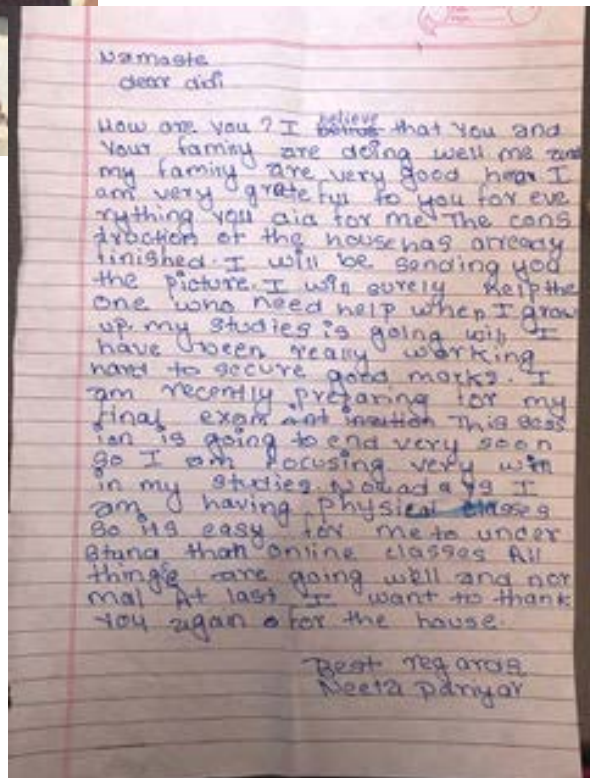 Namaste
dear didi
How are you? I believe that you and
your family are doing well me and
my family are very good hear I
am very grateful to you for eve
rything you did for me The cons
truction of the house has already
finished. I will be sending you
the picture. I will surely help the
one who need help when I grow
up. my studies is going will I
have been really working
hard to secure good marks. I
am recently preparing for my
final exam This sess
ion is going to end very soon
so I am focusing very will
in my studies. Nowadays I
am having physical classes
so its easy for me to under
stand than online classes All
things are going well and nor
mal At last I want to thank
you again for the house.
Best regards
Neeta pariyar